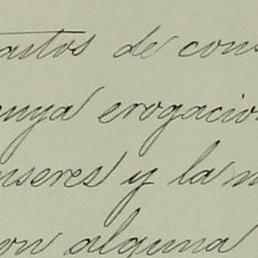 astos de cons
cuya erogacion
nseres y la m
on alguna